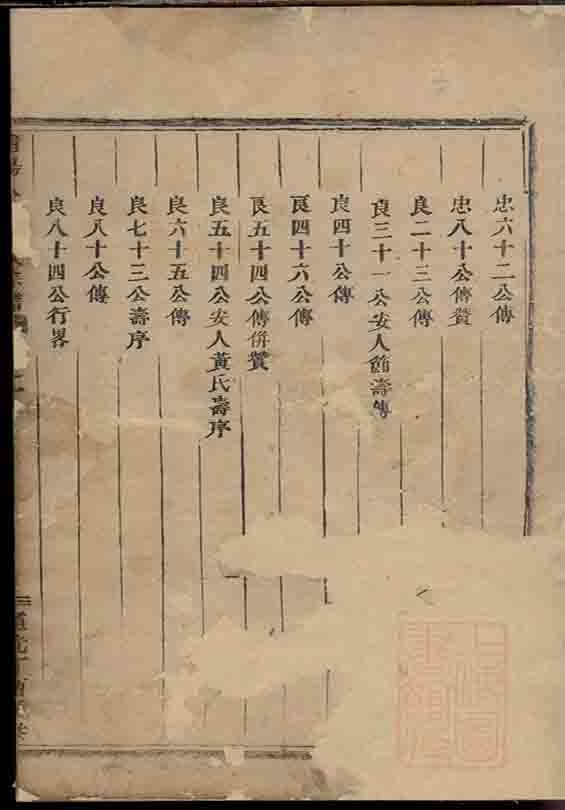 忠六十二公傳
忠八十公傳贊
良二十三公傳
良三十一公安人節壽傳
良四十公傳
良四十六公傳
良五十四公傳併贊
良五十四公安人黃氏壽序
良六十五公傳
良七十三公壽序
良八十公傳
良八十四公行畧